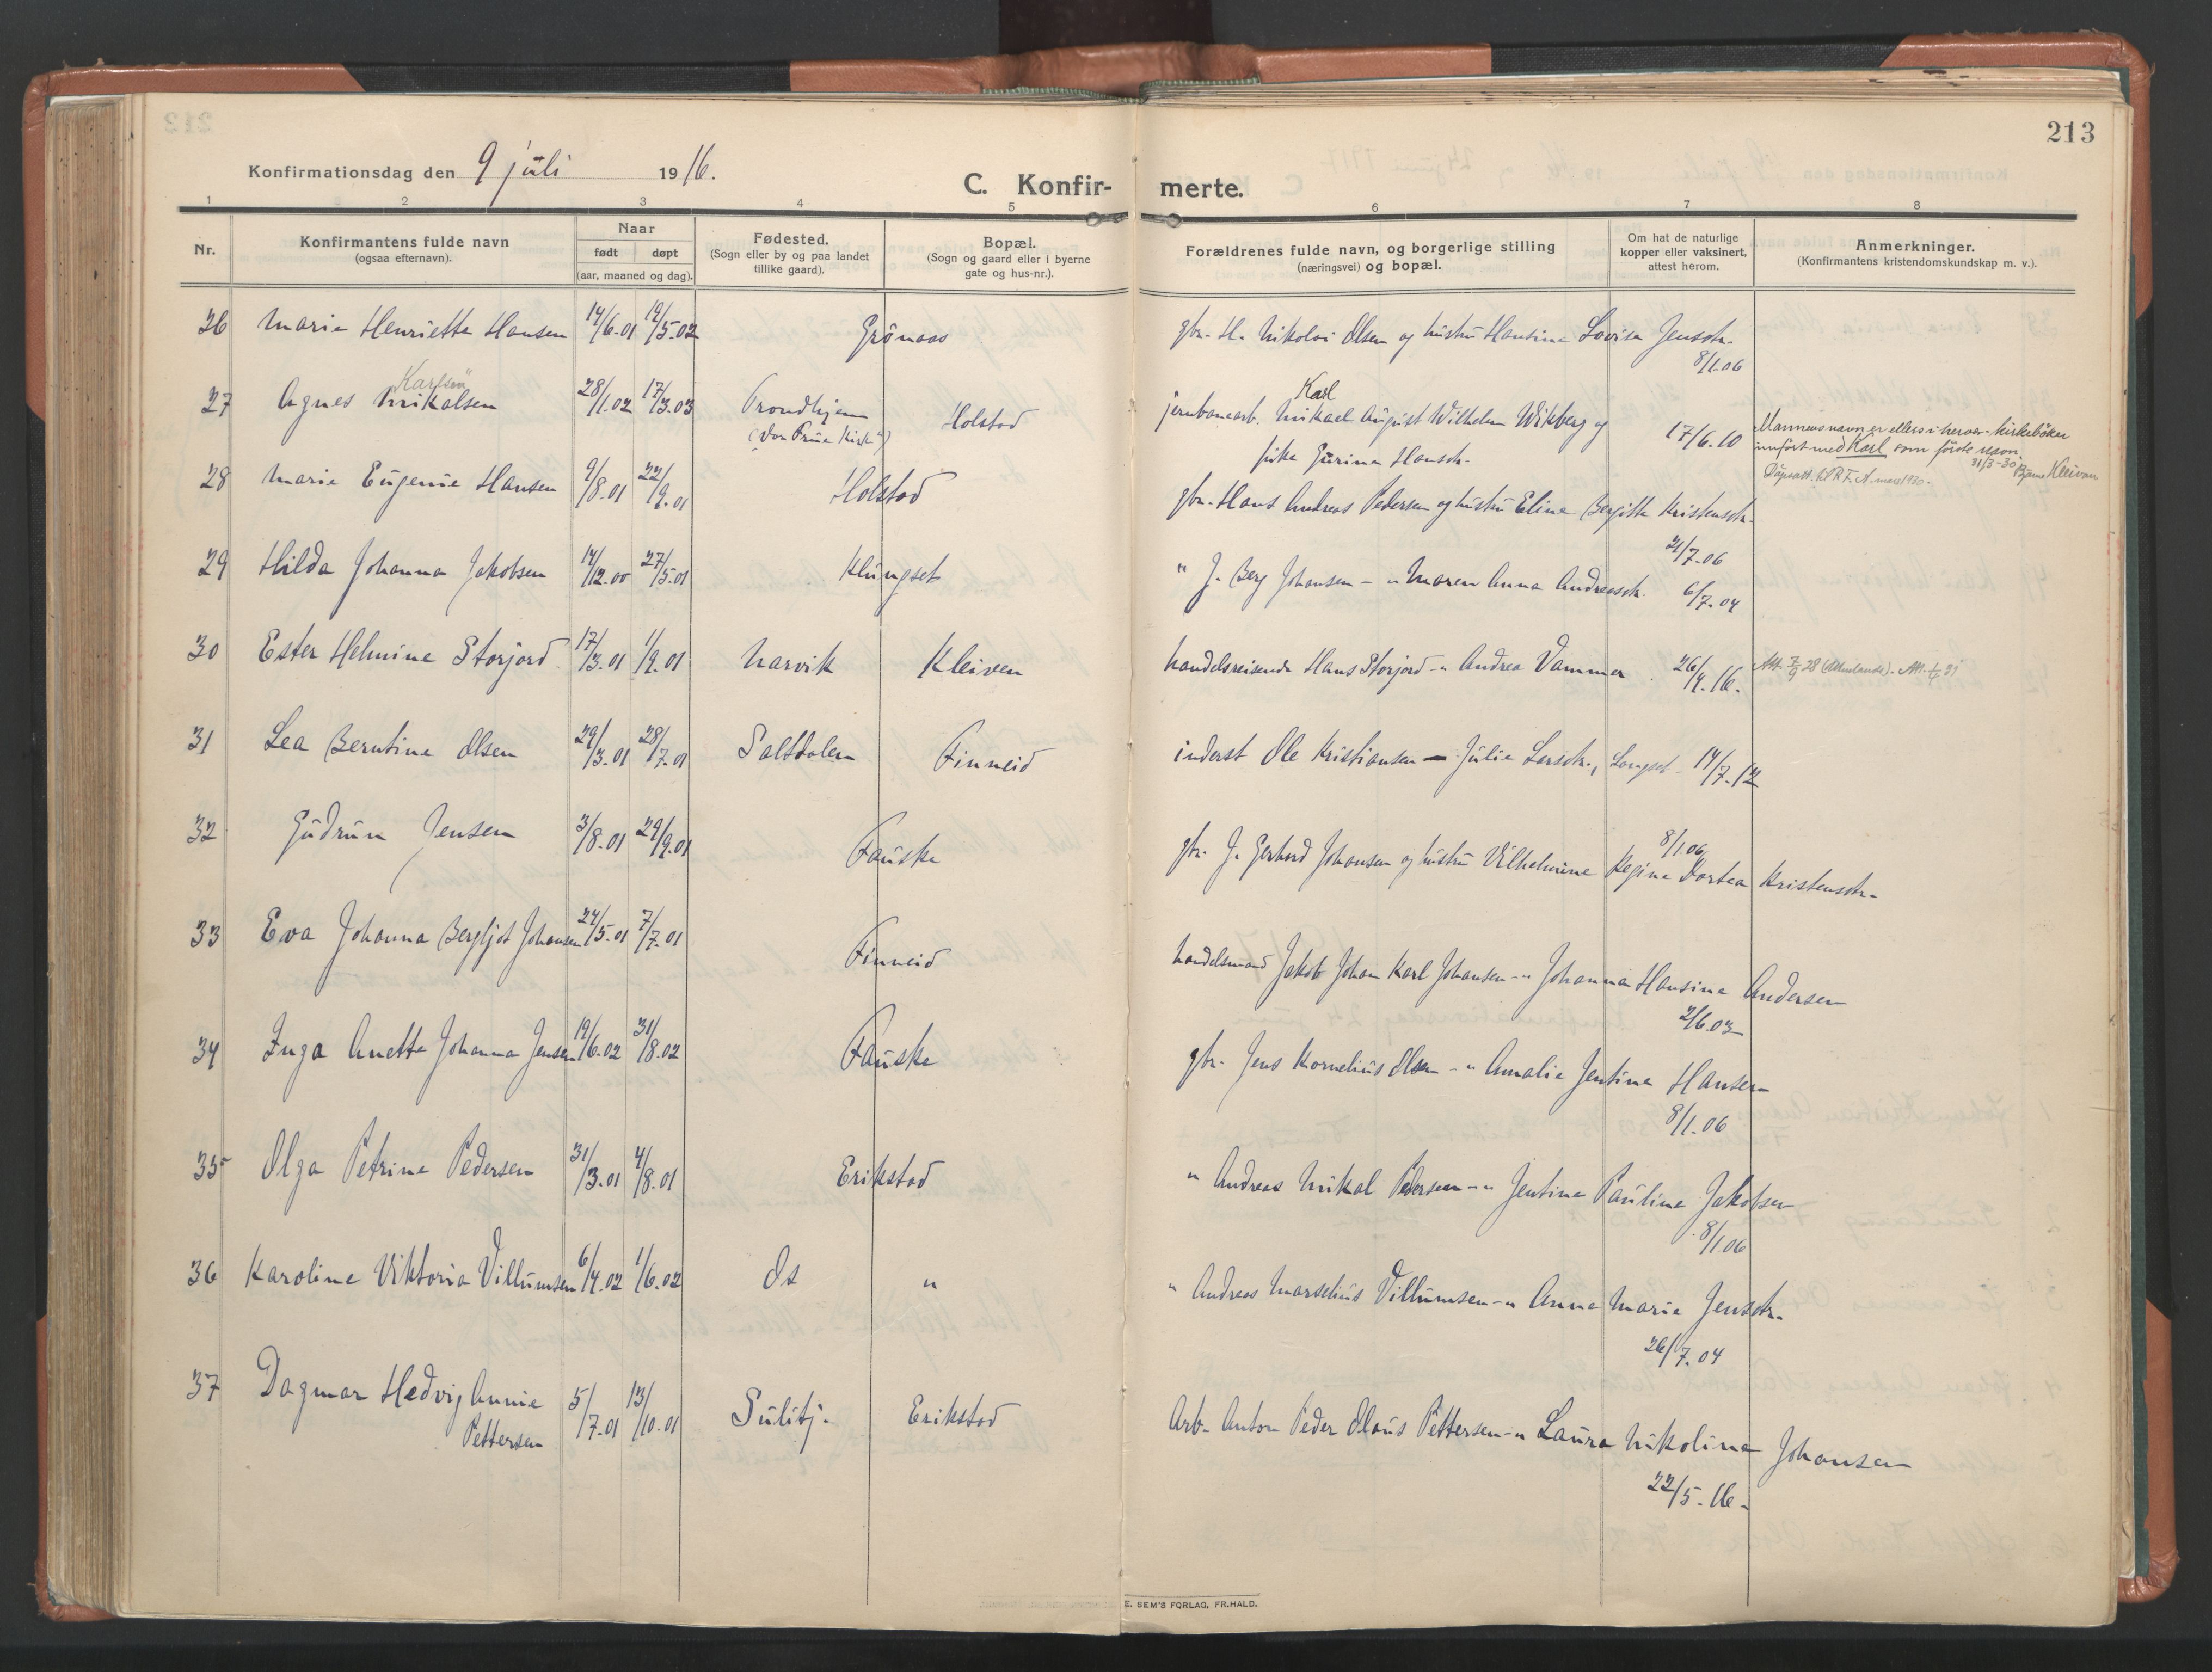 213
Konfirmationsdag den 9 juli 1916.
C. Konfir- merte.
1 2 3 4 5 6 7 8
Nr.
Konfirmantens fulde navn
(ogsaa efternavn).
Naar
født døpt
(aar, maaned og dag).
Fødested.
(Sogn eller by og paa landet
tillike gaard).
Bopæl.
(Sogn og gaard eller i byerne
gate og hus-nr.).
Forældrenes fulde navn, og borgerlige stilling
(næringsvei) og bopæl.
Om hat de naturlige
kopper eller vaksinert,
attest herom.
Anmerkninger.
(Konfirmantens kristendomskundskap m. v.).
26 Marie Henriette Hansen 14/6-01 19/5.02 Grönaas gbr. H. Nikolai Olsen og hustru Hansine Lovise Jensdtr.
8/1.06
Karlsen
27 Agnes Mikalsen 28/1.02 17/3.03 Trondhjem Holstad jernbanearb. Mikael August Wilhelm Wikberg og 17/6.10
Karl
(Vor Frue Kirke)
pike Gurine Hansdtr.
Mannens navn er ellers i herv. kirkebøker
innført med Karl som første navn.
31/3-30 Bjarne Kleivan
Dåpsatt. til R.F.A. mars 1930.
28 Marie Eugenie Hansen 9/8.01 22/9.01 Holstad gbr. Hans Andreas Pedersen og hustru Eline Bergitte Kristensdtr.
21/7.06
29 Hilda Johanna Jakobsen 14/12.00 27/5.01 Klungset " J. Berg Johansen - " Maren Anna Andreasdtr. 6/7.04
30 Ester Helmine Storjord 17/3.01 1/9.01 Narvik Kleiven handelsreisende Hans Storjord - " Andrea Vammer 26/4.16.
Att. 7/9 28 - Att.
31 Lea Berntine Olsen 29/3.01 28/7.01 Saltdalen Finneid inderst Ole Kristiansen - Julie Larsdtr., Longset - 14/7.12
32 Gudrun Jensen 3/8.01 29/9.01 Fauske gbr. J. Gerhard Johansen og hustru Vilhelmine Regine Dortea Kristensdtr.
8/1.06
33 Eva Johanna Bergljot Johansen 24/5.01 7/7.01 Finneid handelsmand Jakob Johan Karl Johansen - " Johanna Hansine Andersen
2/6.03
34 Inga Anette Johanna Jensen 19/6.02 31/8.02 Fauske gbr. Jens Kornelius Olsen - " Amalie Jentine Hansen
8/1.06
35 Olga Petrine Pedersen 31/3.01 4/8.01 Erikstad " Andreas Mikal Pedersen - " Jentine Pauline Jakobsen
8/1.06
36 Karoline Viktoria Villumsen 6/4.02 1/6.02 ds " " Andreas Marselius Villumsen - " Anne Marie Jensdtr.
26/7.04
37 Dagmar Hedvig Annie 5/7.01 13/10.01 Sulitj. Erikstad Arb. Anton Peder Olaus Pettersen - " Laura Nikoline Johansen
Pettersen
22/5.16.
E. SEM'S FORLAG, FR.HALD.